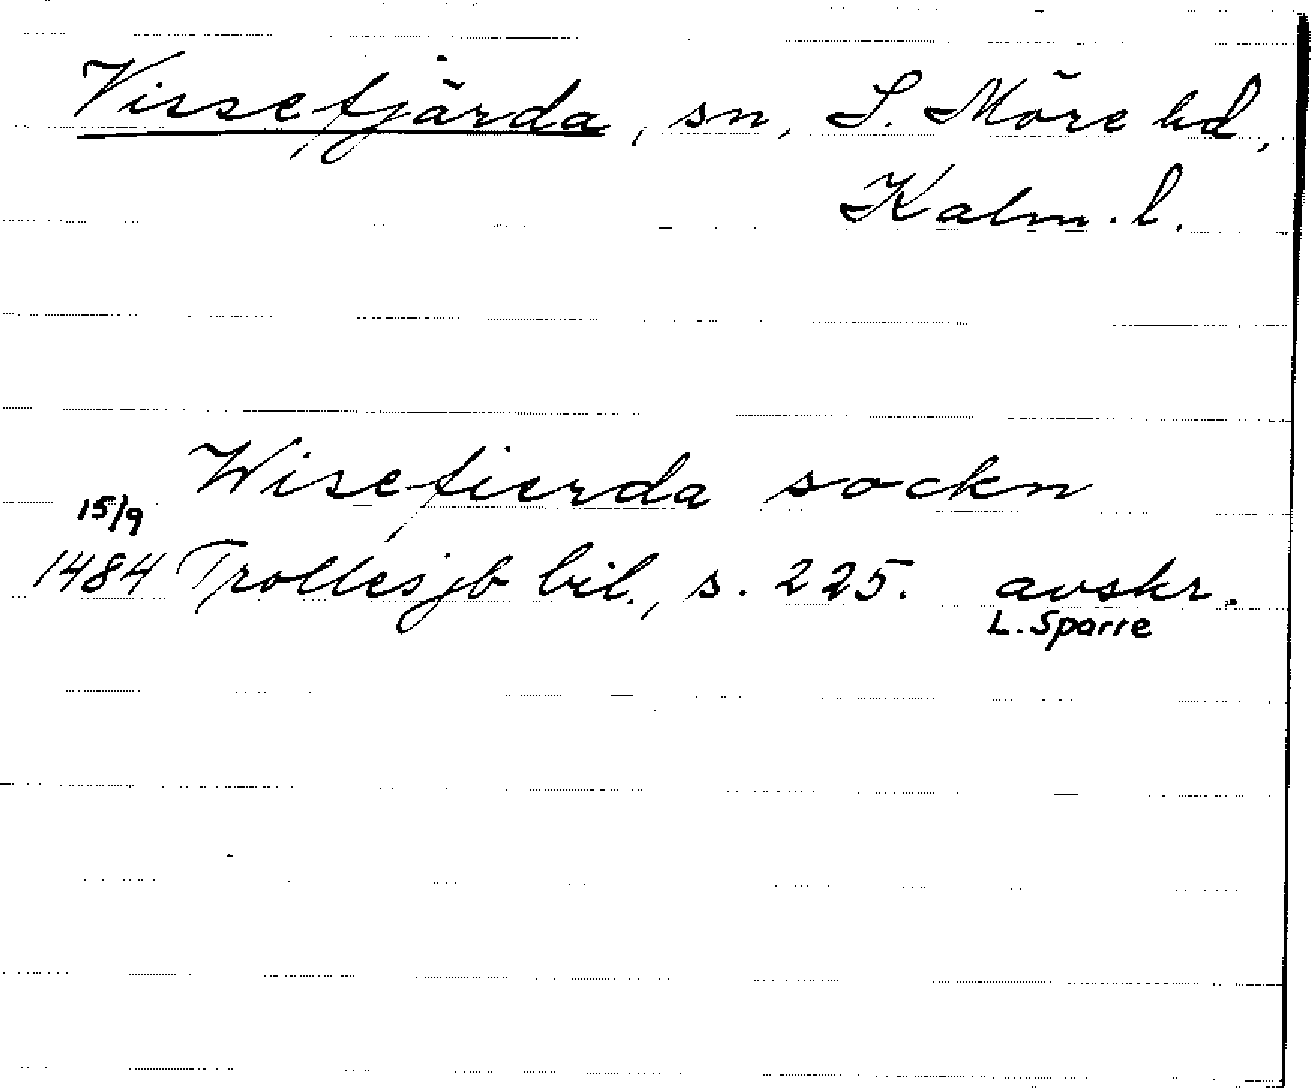 Vissefjärda, sn, S. Möre hd,
Kalm. l.
Wisefierda sockn
15/9
1484 Trollesjb bil., s. 225. avskr.
L. Sparre